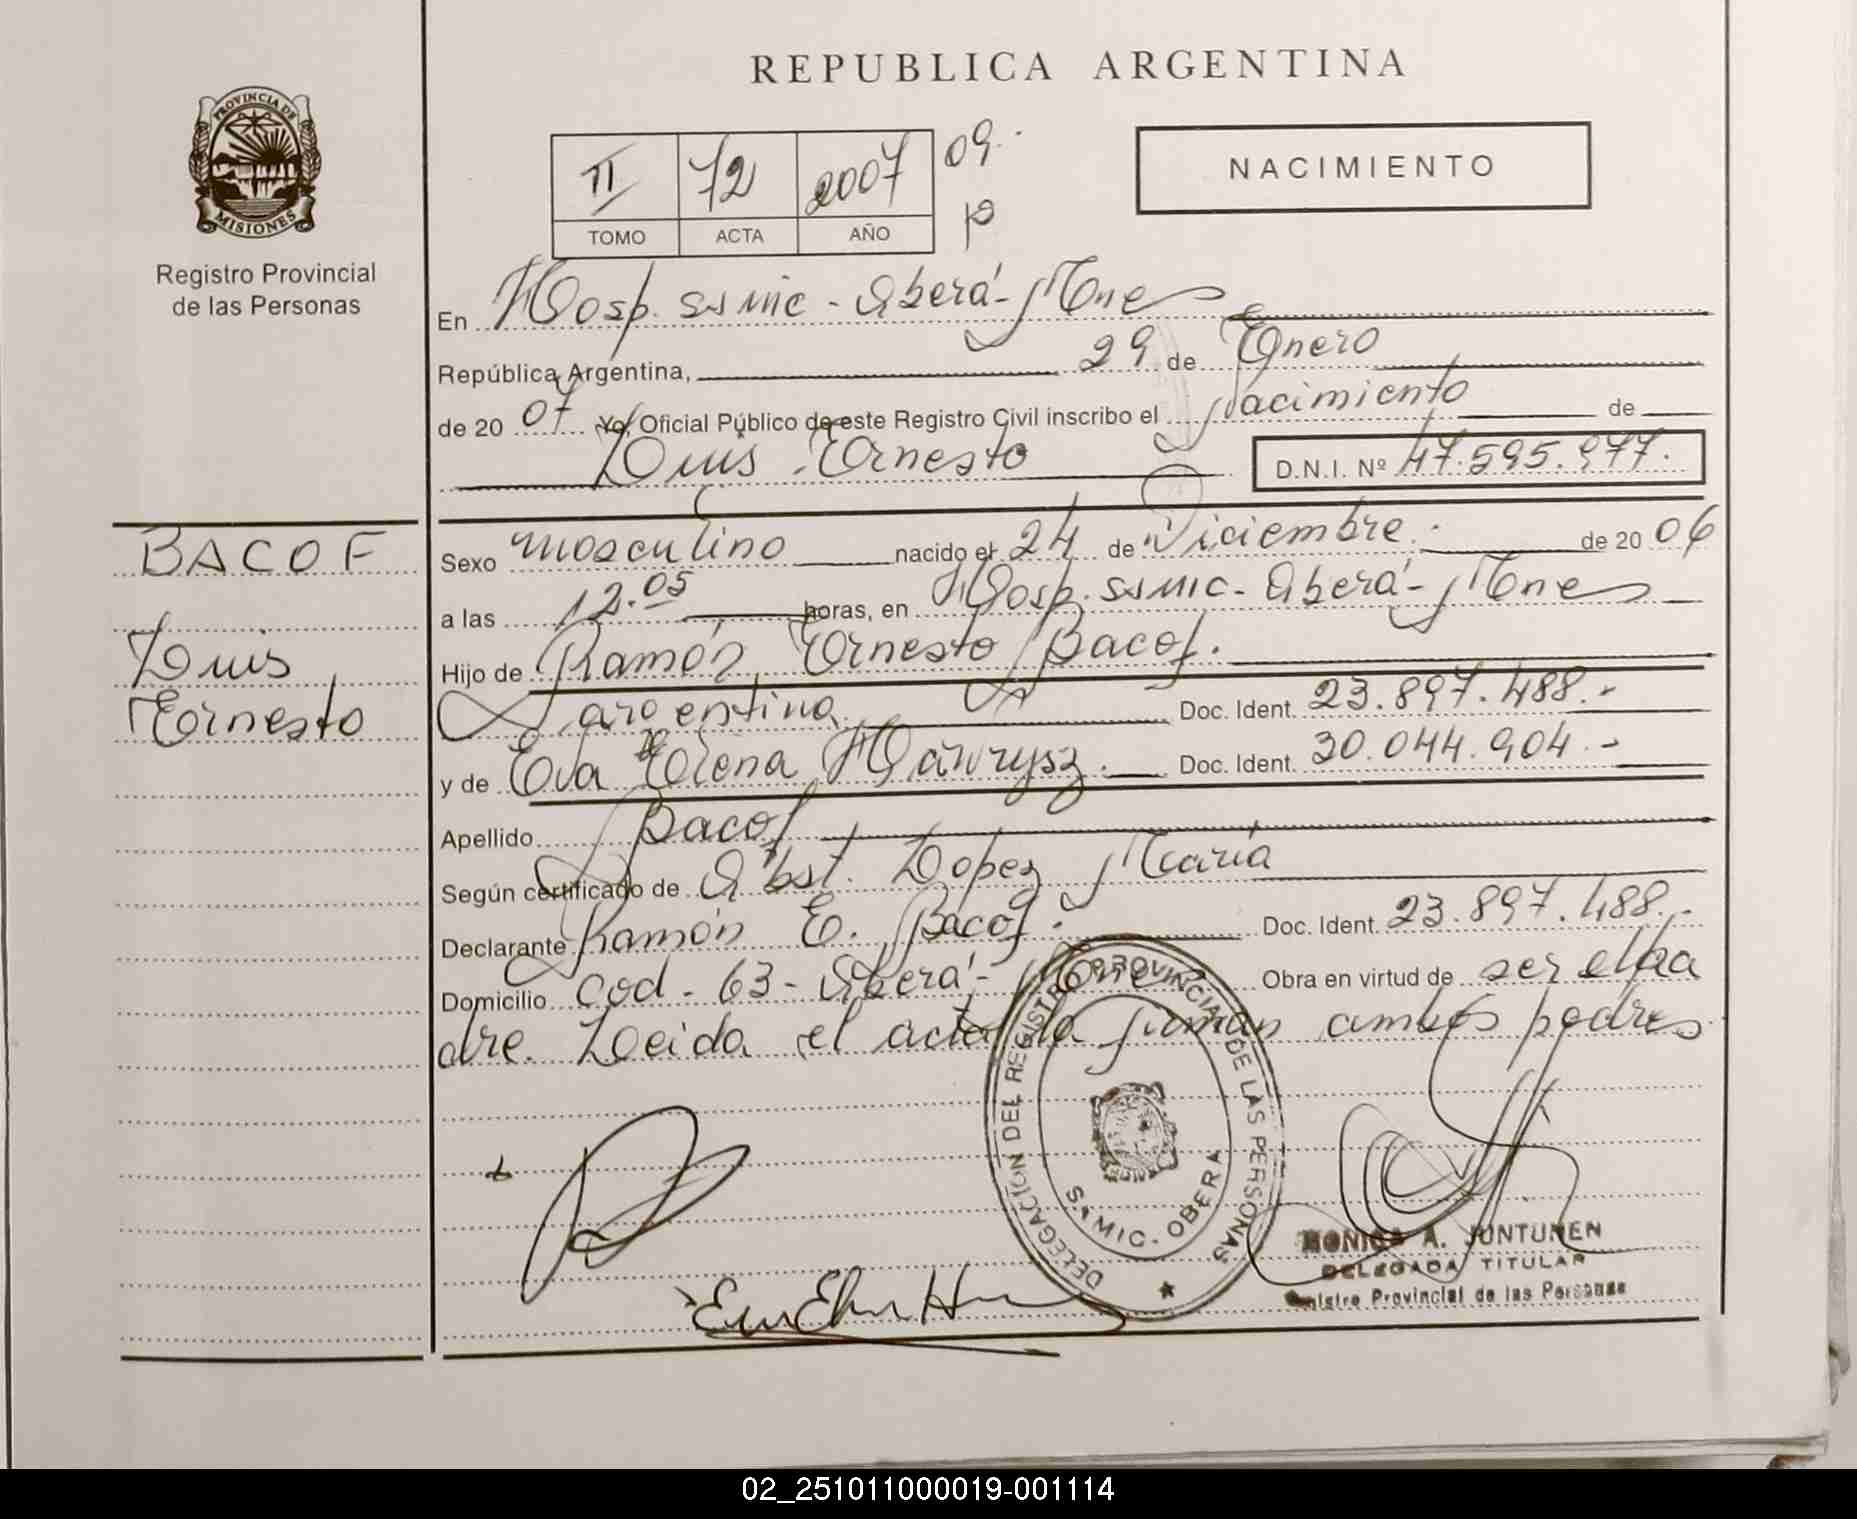 REPUBLICA ARGENTINA
PROVINCIA DE MISIONES
Registro Provincial
de las Personas
II 72 2007 09.
TOMO ACTA AÑO
NACIMIENTO
En Hosp. ssmic - Oberá - Mnes
República Argentina, 29 de Enero
de 2007 Yo, Oficial Público de este Registro Civil inscribo el Nacimiento de
Luis Ernesto D.N.I. Nº 47.595.977.
BACOF
Luis
Ernesto
Sexo masculino nacido el 24 de Diciembre. de 2006
a las 12.05 horas, en Hosp. ssmic - Oberá - Mnes
Hijo de Ramón Ernesto Bacof.
argentina Doc. Ident. 23.897.488.-
y de Eva Elena Hawrysz. Doc. Ident. 30.044.904.-
Apellido Bacof
Según certificado de Obst. Lopez María
Declarante Ramón E. Bacof. Doc. Ident. 23.897.488.-
Domicilio Cod - 63 - Oberá - Mnes Obra en virtud de ser el pa
dre. Leida el acta la firman ambos padres
DELEGACION DEL REGISTRO PROVINCIAL DE LAS PERSONAS
S.MIC. OBERA
MONICA A. JUNTUNEN
DELEGADA TITULAR
Registro Provincial de las Personas
02_251011000019-001114